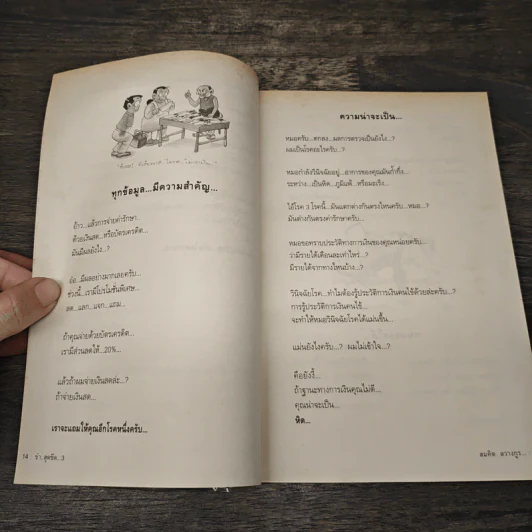 ทุกข้อมูล...มีความสำคัญ...
อ้าว...แล้วการจ่ายค่ารักษา
ด้วยเงินสด...หรือบัตรเครดิต...
มันมีผลยังไง...?
อ๋อ...มีผลอย่างมากเลยครับ...
ช่วงนี้...เรามีโปรโมชั่นพิเศษ...
ลด...แลก...แจก...แถม...
ถ้าคุณจ่ายด้วยบัตรเครดิต...
เรามีส่วนลดให้...20%...
แล้วถ้าผมจ่ายเงินสดล่ะ...?
ถ้าจ่ายเงินสด...
เราจะแถมให้คุณอีกโรคหนึ่งครับ...
14 : ขำ..สุดขีด..3
ความน่าจะเป็น...
หมอครับ...ตกลง...ผลการตรวจเป็นยังไง...?
ผมเป็นโรคอะไรครับ...?
หมอกำลังวินิจฉัยอยู่...อาการของคุณมันก้ำกึ่ง...
ระหว่าง...เป็นหิด...ภูมิแพ้...หรือมะเร็ง...
ไอ้โรค 3 โรคนี้...มันแตกต่างกันตรงไหนครับ...หมอ...?
มันต่างกันตรงค่ารักษาครับ...
หมอขอทราบประวัติทางการเงินของคุณหน่อยครับ...
ว่ามีรายได้เดือนละเท่าไหร่...?
มีรายได้จากทางไหนบ้าง...?
วินิจฉัยโรค...ทำไมต้องรู้ประวัติการเงินคนไข้ด้วยล่ะครับ...?
การรู้ประวัติการเงินคนไข้...
จะทำให้หมอวินิจฉัยโรคได้แม่นขึ้น...
แม่นยังไงครับ...? ผมไม่เข้าใจ...?
คืองี้...
ถ้าฐานะทางการเงินคุณไม่ดี...
คุณน่าจะเป็น...
หิด...
สมคิด ลวางกูร...